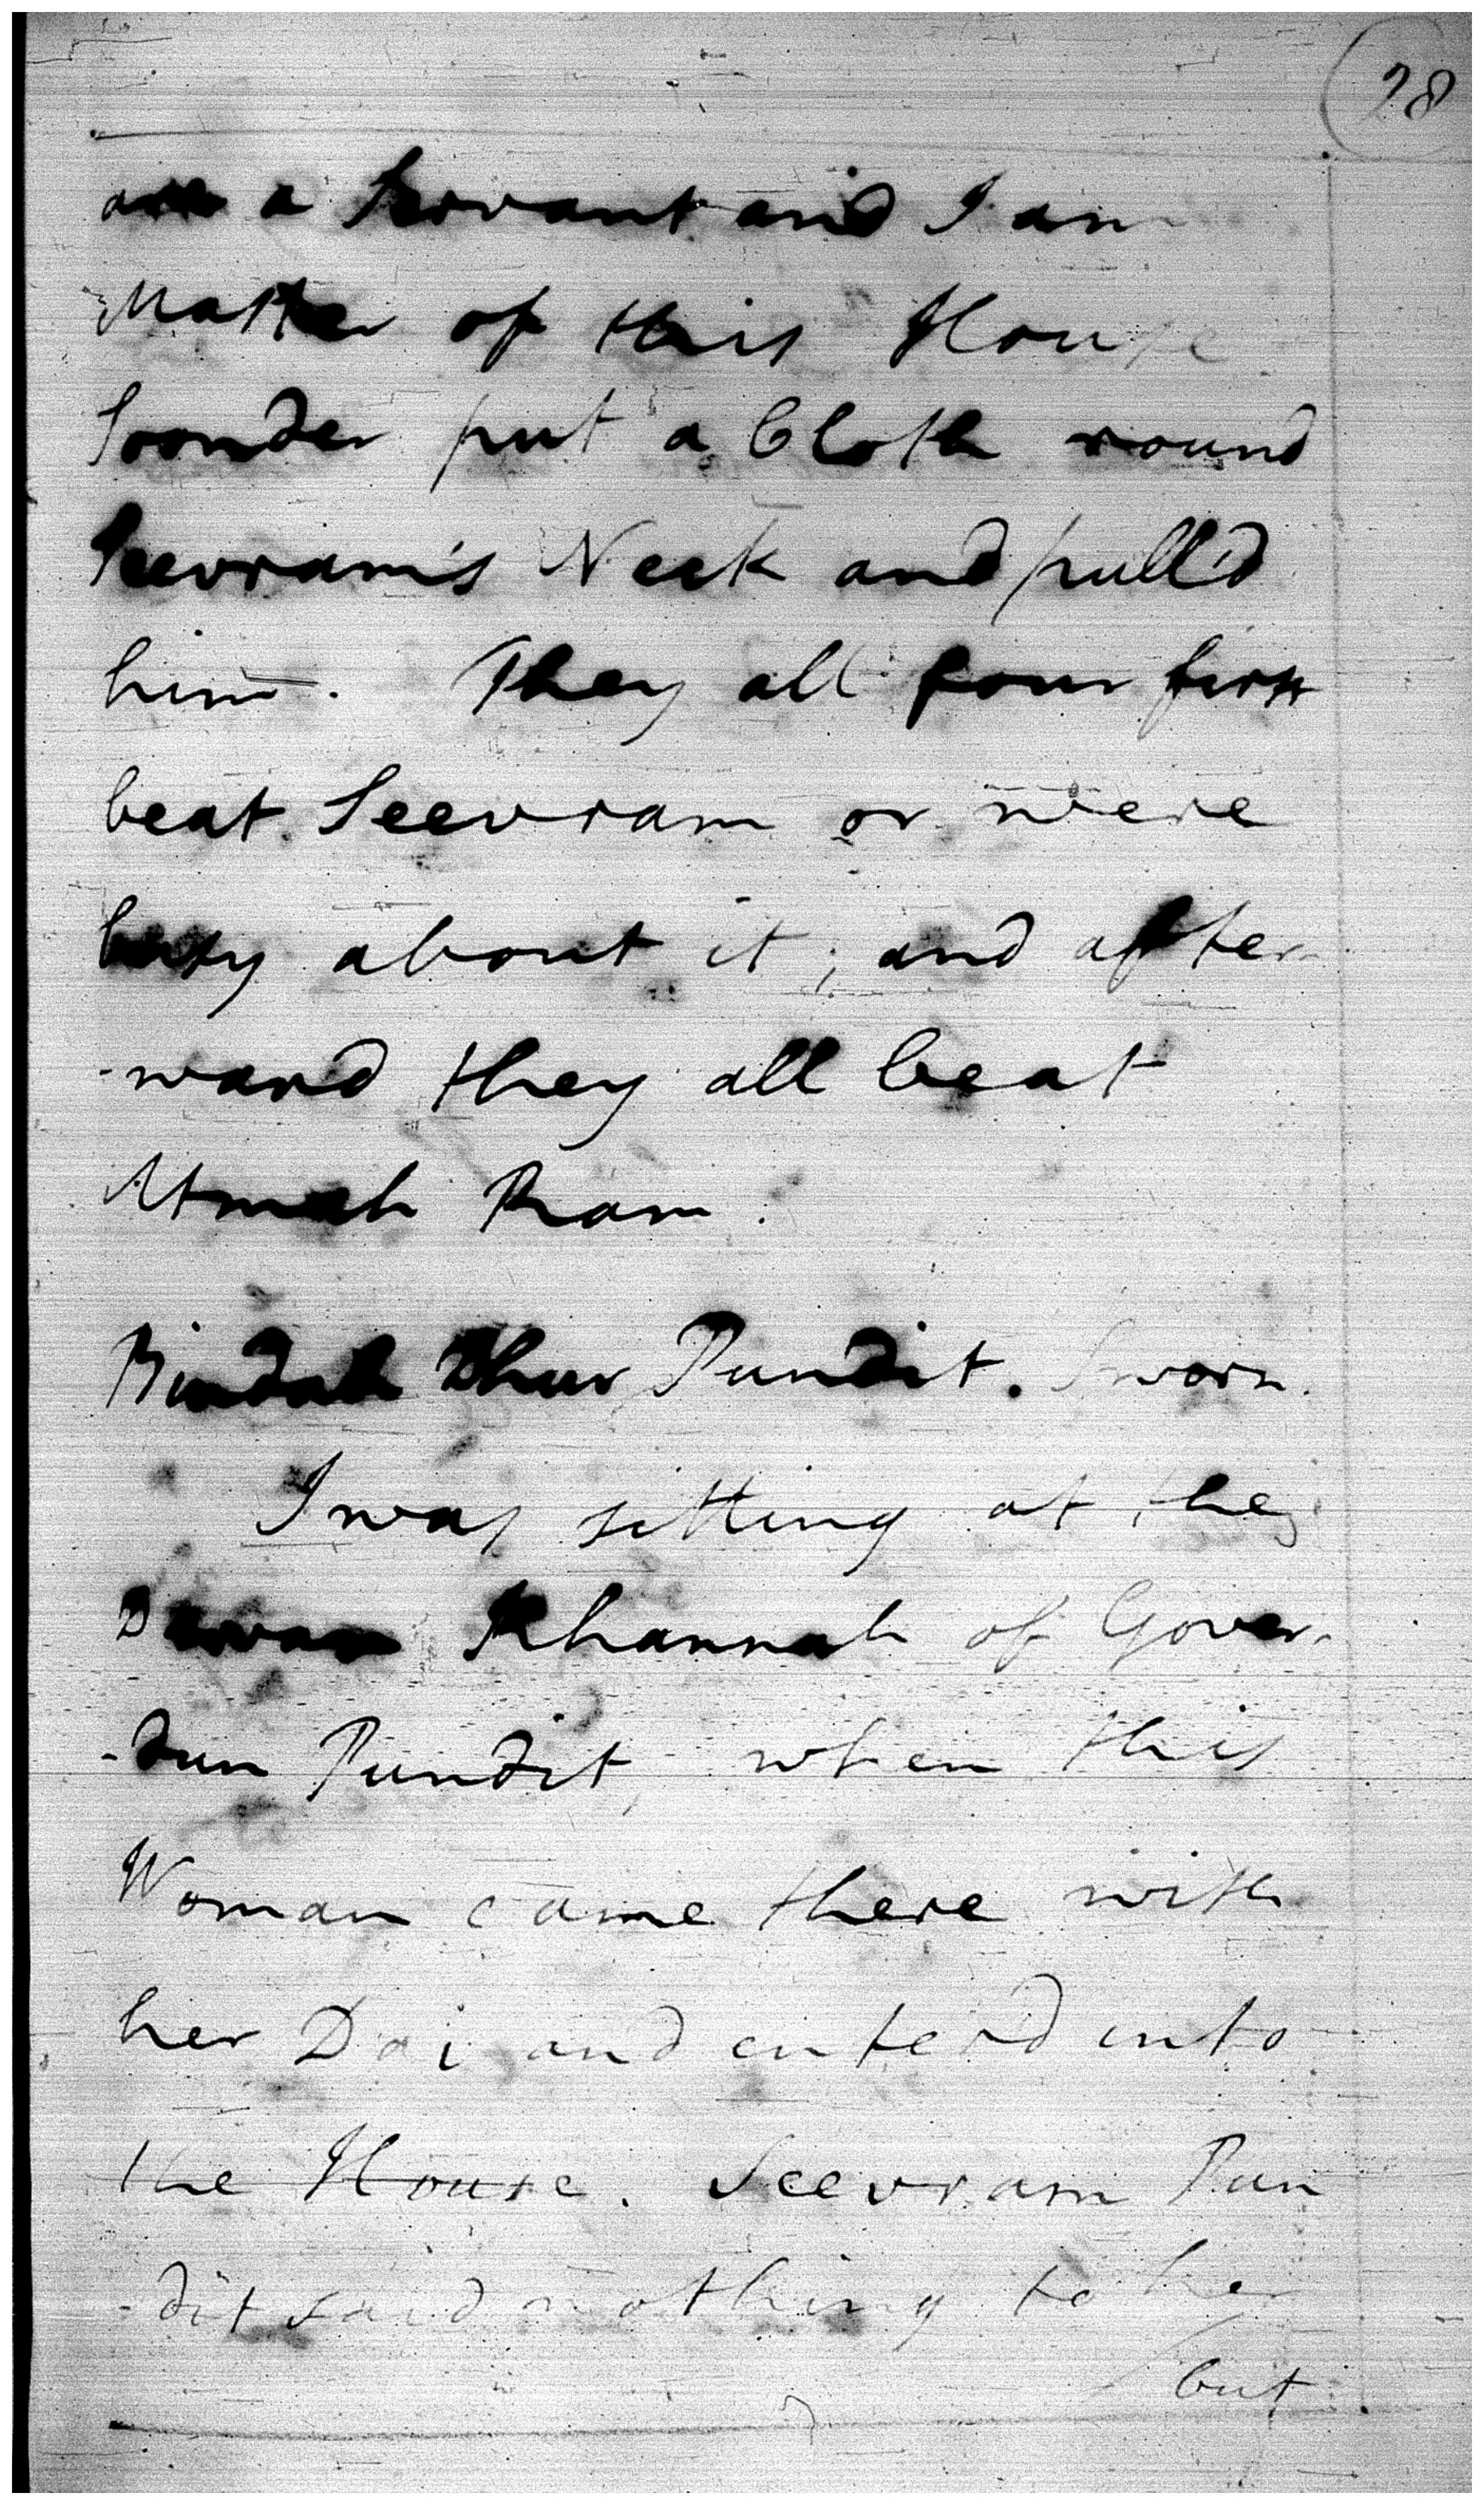 28
are a Servant and I am
Master of this House
Soonder put a Cloth round
Seevram's Neck and pull'd
him. They all four first
beat Seevram or were
busy about it; and after
-ward they all beat
Atmah Ram.
Bindah Dhur Pundit. Sworn.
I was sitting at the
Dewan Khannah of Gover-
-dun Pundit, when this
Woman came there with
her Dai and enter'd into
the House. Seevram Pun
-dit said nothing to her
but